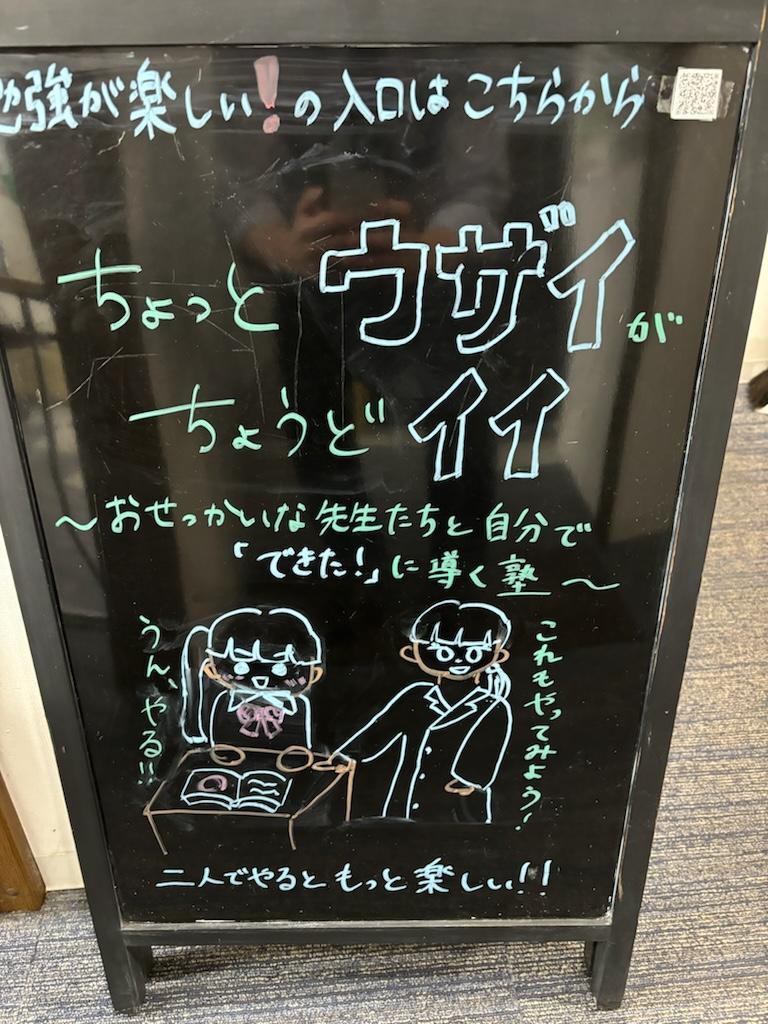 勉強が楽しい!の入口はこちらから
ちょっとウザイが
ちょうどイイ
～おせっかいな先生たちと自分で
「できた!」に導く塾～
うん、やる!!
これもやってみよう!
二人でやるともっと楽しい!!